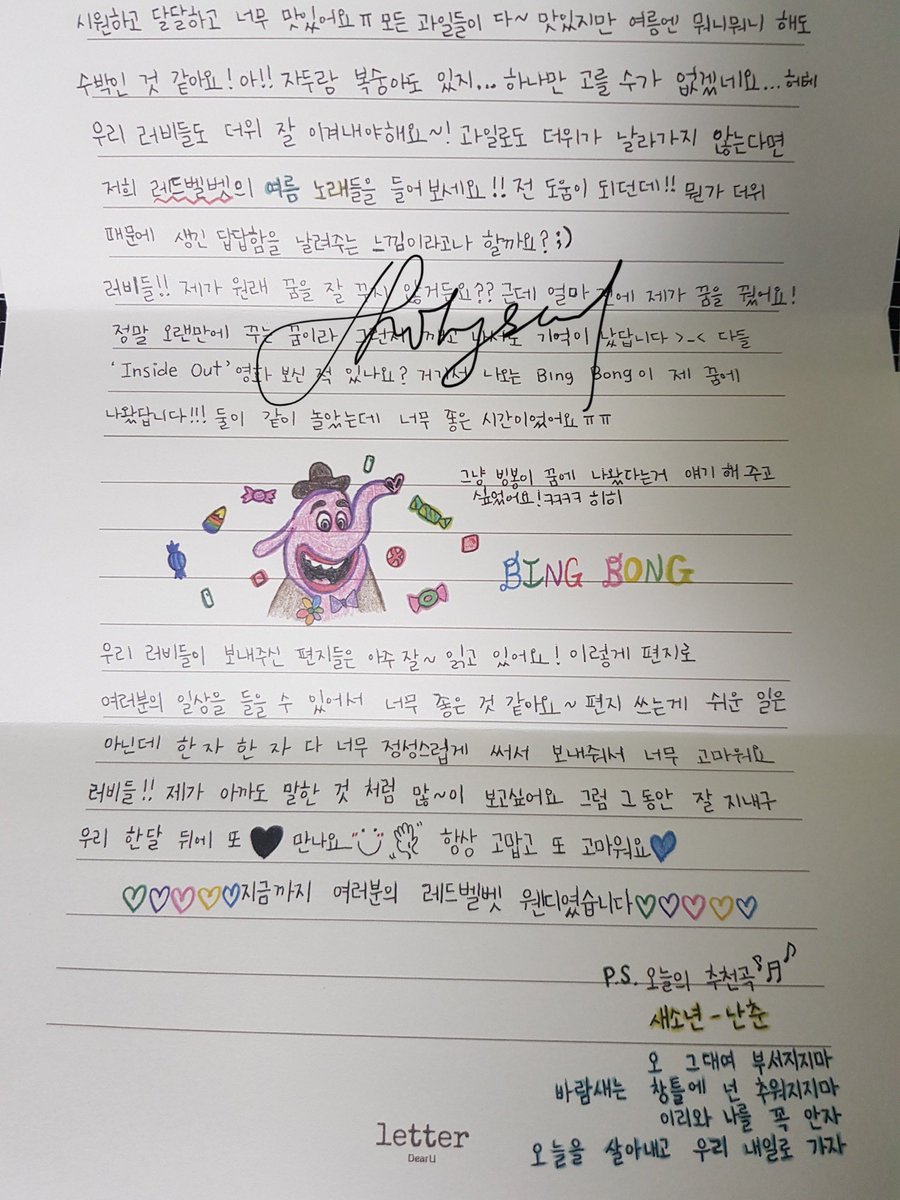 시원하고 달달하고 너무 맛있어요ㅠ 모든 과일들이 다~ 맛있지만 여름엔 뭐니뭐니 해도
수박인 것 같아요! 아!! 자두랑 복숭아도 있지... 하나만 고를 수가 없겠네요... 헤헤
우리 러비들도 더위 잘 이겨내야해요~! 과일로도 더위가 날라가지 않는다면
저희 레드벨벳의 여름 노래들을 들어보세요!! 전 도움이 되던데!! 뭔가 더위
때문에 생긴 답답함을 날려주는 느낌이라고나 할까요? ;)
러비들!! 제가 원래 꿈을 잘 꾸지 않거든요?? 근데 얼마 전에 제가 꿈을 꿨어요!
정말 오랜만에 꾸는 꿈이라 그런지 기억이 났답니다 >_< 다들
'Inside Out' 영화 보신 적 있나요? 거기서 나오는 Bing Bong이 제 꿈에
나왔답니다!!! 둘이 같이 놀았는데 너무 좋은 시간이었어요ㅠㅠ
그냥 빙봉이 꿈에 나왔다는거 얘기 해 주고
싶었어요! ㅋㅋㅋㅋ 히히
BING BONG
우리 러비들이 보내주신 편지들은 아주 잘~ 읽고 있어요! 이렇게 편지로
여러분의 일상을 들을 수 있어서 너무 좋은 것 같아요~ 편지 쓰는게 쉬운 일은
아닌데 한 자 한 자 다 너무 정성스럽게 써서 보내줘서 너무 고마워요
러비들!! 제가 아까도 말한 것 처럼 많~이 보고싶어요 그럼 그동안 잘 지내구
우리 한달 뒤에 또 🖤 만나요 항상 고맙고 또 고마워요💙
♡♡♡♡♡지금까지 여러분의 레드벨벳 웬디였습니다♡♡♡♡♡
P.S. 오늘의 추천곡♪♬♪
새소년 - 난춘
오 그대여 부서지지마
바람새는 창틀에 넌 추워지지마
이리와 나를 꼭 안자
오늘을 살아내고 우리 내일로 가자
letter
DearU